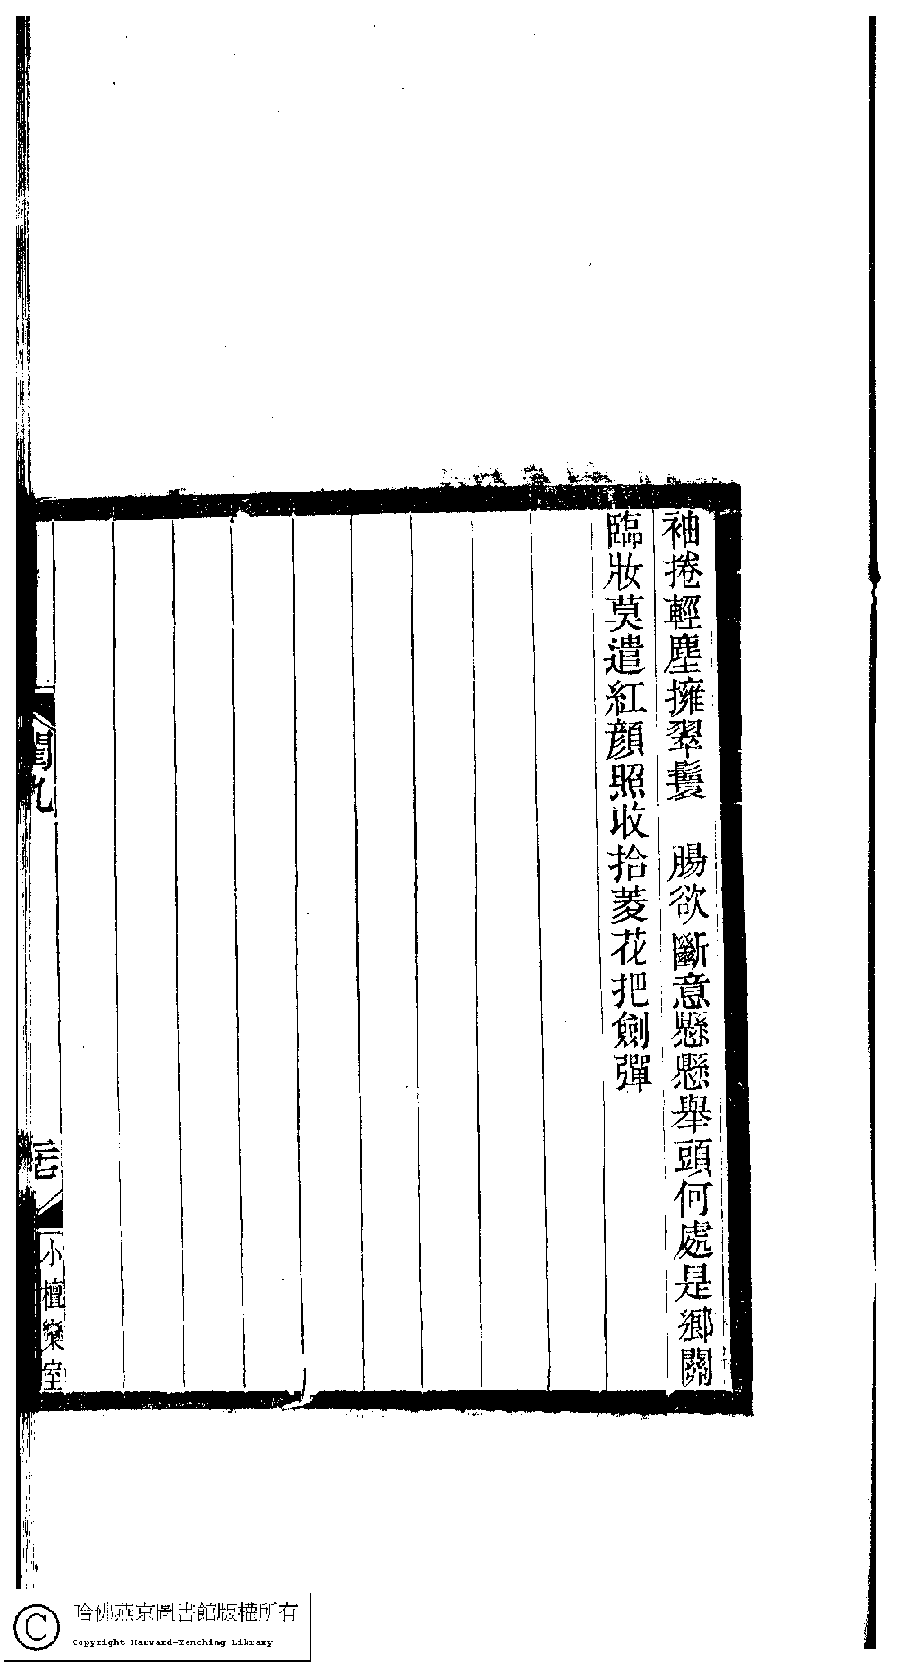 袖捲輕塵擁翠鬟　腸欲斷意懸懸舉頭何處是鄉關
臨妝莫遣紅顏照收拾菱花把劍彈
閨九
小檀欒室
哈佛燕京圖書館版權所有
Copyright Harvard-Yenching Library